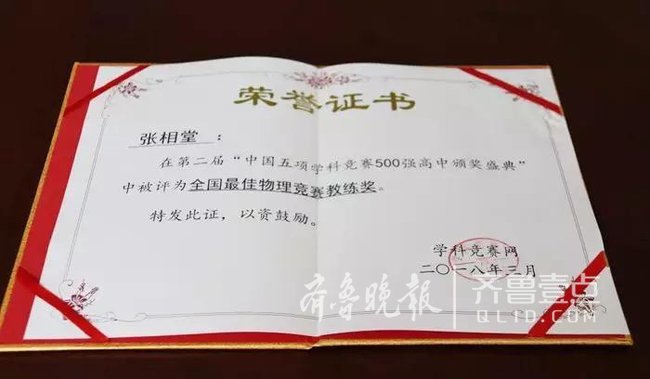 荣誉证书
张相堂：
在第二届“中国五项学科竞赛500强高中颁奖盛典”
中被评为全国最佳物理竞赛教练奖。
特发此证，以资鼓励。
学科竞赛网
二〇一八年三月
齐鲁晚报 齐鲁壹点
QLID.COM